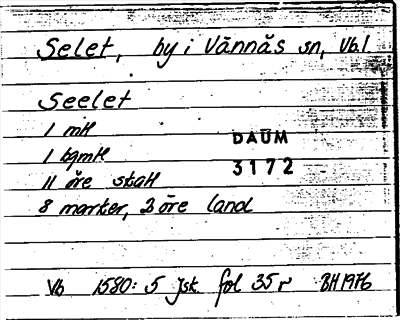 Selet, by i Vännäs sn, Vb.l.
Seelet
1 mtl
1 bgmtl
DAUM
11 öre skatt
3172
8 marker, 3 öre land
Vb 1580: 5 jsk. fol 35 r BH 1976